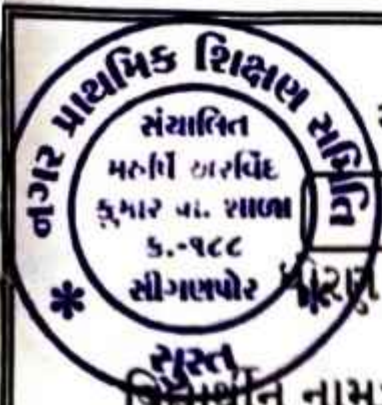 નગર પ્રાથમિક શિક્ષણ સમિતિ
સંચાલિત
મહર્ષિ અરવિંદ
કુમાર પ્રા. શાળા
ક્ર.-૧૮૮
સીંગણપોર
* *
સુરત
ધોરણ
વિદ્યાર્થીનું નામ